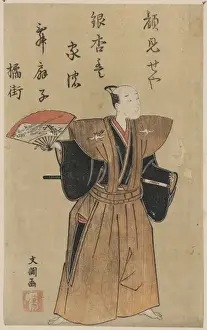 顔見せや
銀杏
家
舞扇子
橘街
文調画